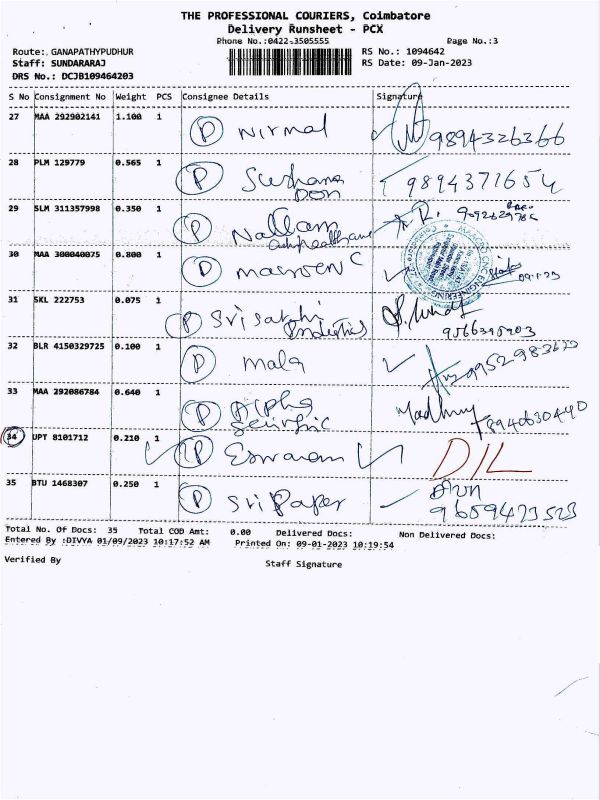 THE PROFESSIONAL COURIERS, Coimbatore
Delivery Runsheet - PCX
Phone No.:0422-3505555 Page No.:3
Route: GANAPATHYPUDHUR RS No.: 1094642
Staff: SUNDARARAJ RS Date: 09-Jan-2023
DRS No.: DCJB109464203
S No Consignment No Weight PCS Consignee Details Signature
27 MAA 292902141 1.100 1 P Nirmal 9894326366
28 PLM 129779 0.565 1 P 9894371654
29 SLM 311357998 0.350 1 P Nallam
30 MAA 300040075 0.800 1 P C
31 SKL 222753 0.075 1 P Sri sakthi
9566395903
32 BLR 4150329725 0.100 1 P mala
33 MAA 292086784 0.640 1 P Alpha Madhu
34 UPT 8101712 0.210 1 P Eswaran D/L
35 BTU 1468307 0.250 1 P Sri Paper
9659473523
Total No. Of Docs: 35 Total COD Amt: 0.00 Delivered Docs: Non Delivered Docs:
Entered By :DIVYA 01/09/2023 10:17:52 AM Printed On: 09-01-2023 10:19:54
Verified By Staff Signature